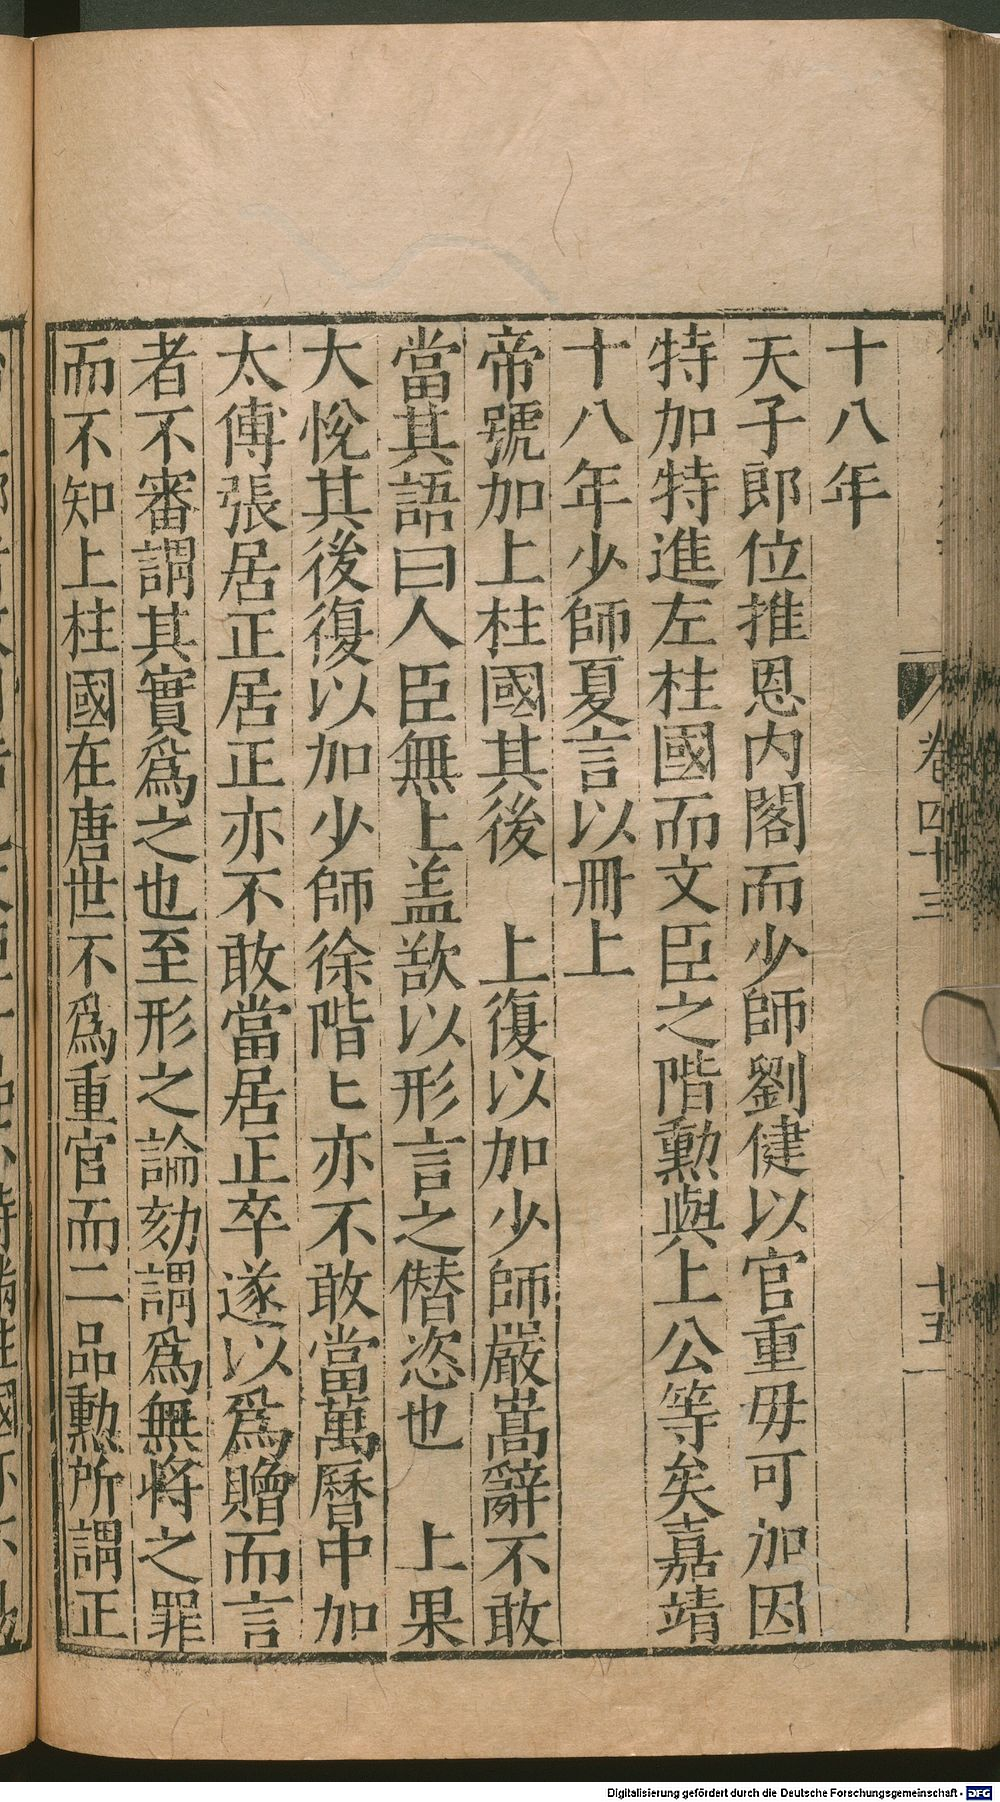 十八年
天子郎位推恩内閣而少師劉健以官重毋可加因
特加特進左柱國而文臣之階勲與上公等矣嘉靖
十八年少師夏言以冊上
帝號加上柱國其後　上復以加少師嚴嵩辭不敢
當其語曰人臣無上盖歆以形言之僣恣也　上果
大悅其後復以加少師徐階匕亦不敢當萬曆中加
太傅張居正居正亦不敢當居正卒遂以爲贈而言
者不審謂其實爲之也至形之論劾謂爲無將之罪
而不知上柱國在唐世不爲重官而二品勲所謂正
卷四十三
十五
Digitalisierung gefördert durch die Deutsche Forschungsgemeinschaft - DFG